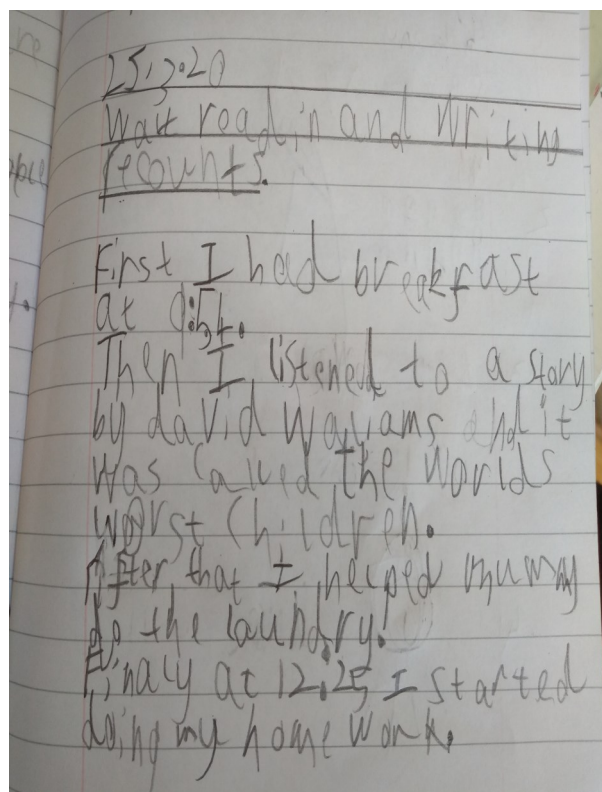 25.3.20
Walt readin and writing
recounts.
First I had breakfast
at 9:54.
Then I listened to a story
by david Waliams and it
was called the worlds
worst children.
After that I helped mummy
do the laundry.
Finaly at 12:25 I started
doing my home work.